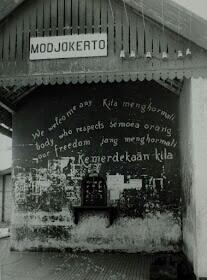 MODJOKERTO
We welcome any
body who respects
your freedom
Kita menghormati
semoea orang
jang menghormati
Kemerdekaän kita